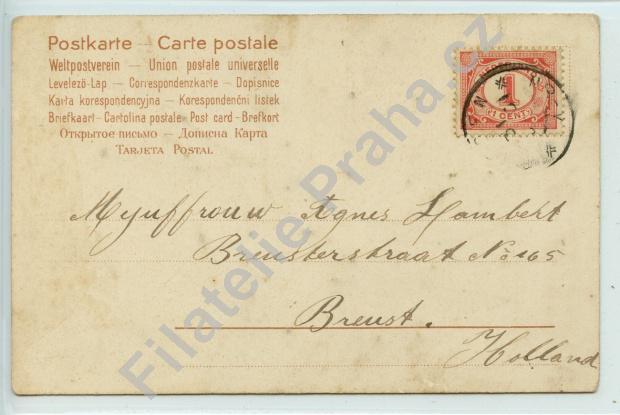 Postkarte – Carte postale
Weltpostverein – Union postale universelle
Levelező-Lap – Correspondenzkarte – Dopisnice
Karta korespondencyjna – Korespondenční lístek
Briefkaart – Cartolina postale – Post card – Brefkort
Открытое письмо – Дописна Карта
Tarjeta Postal
1
1 CENT
Mejuffrouw Agnes Lambert
Breusterstraat No 165
Breust.
Holland
Filatelie-Praha.cz